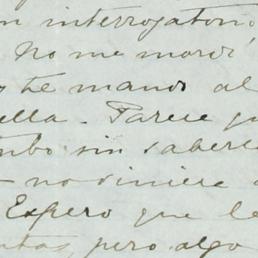 n interrogatorio
No me mordí
te mando al
ella. Parece qu
sin saberl
no viniere
Espero que le
pero algo